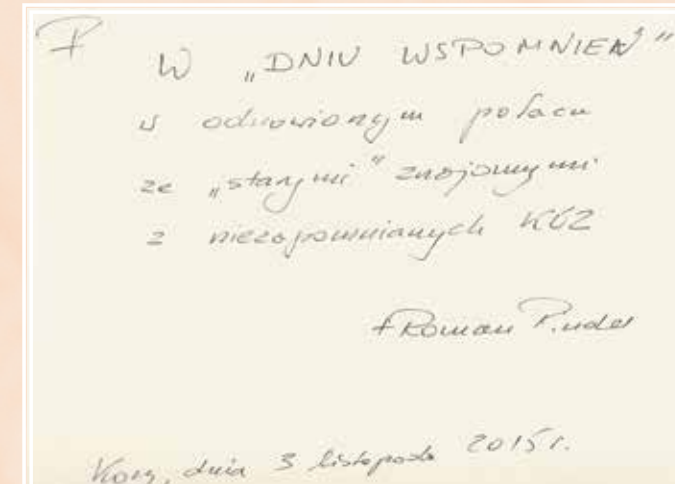 W „DNIU WSPOMNIEŃ”
w odnowionym pałacu
ze „starymi” znajomymi
z niezapomnianych KÓZ
+ Roman Pindel
Kozy, dnia 3 listopada 2015 r.